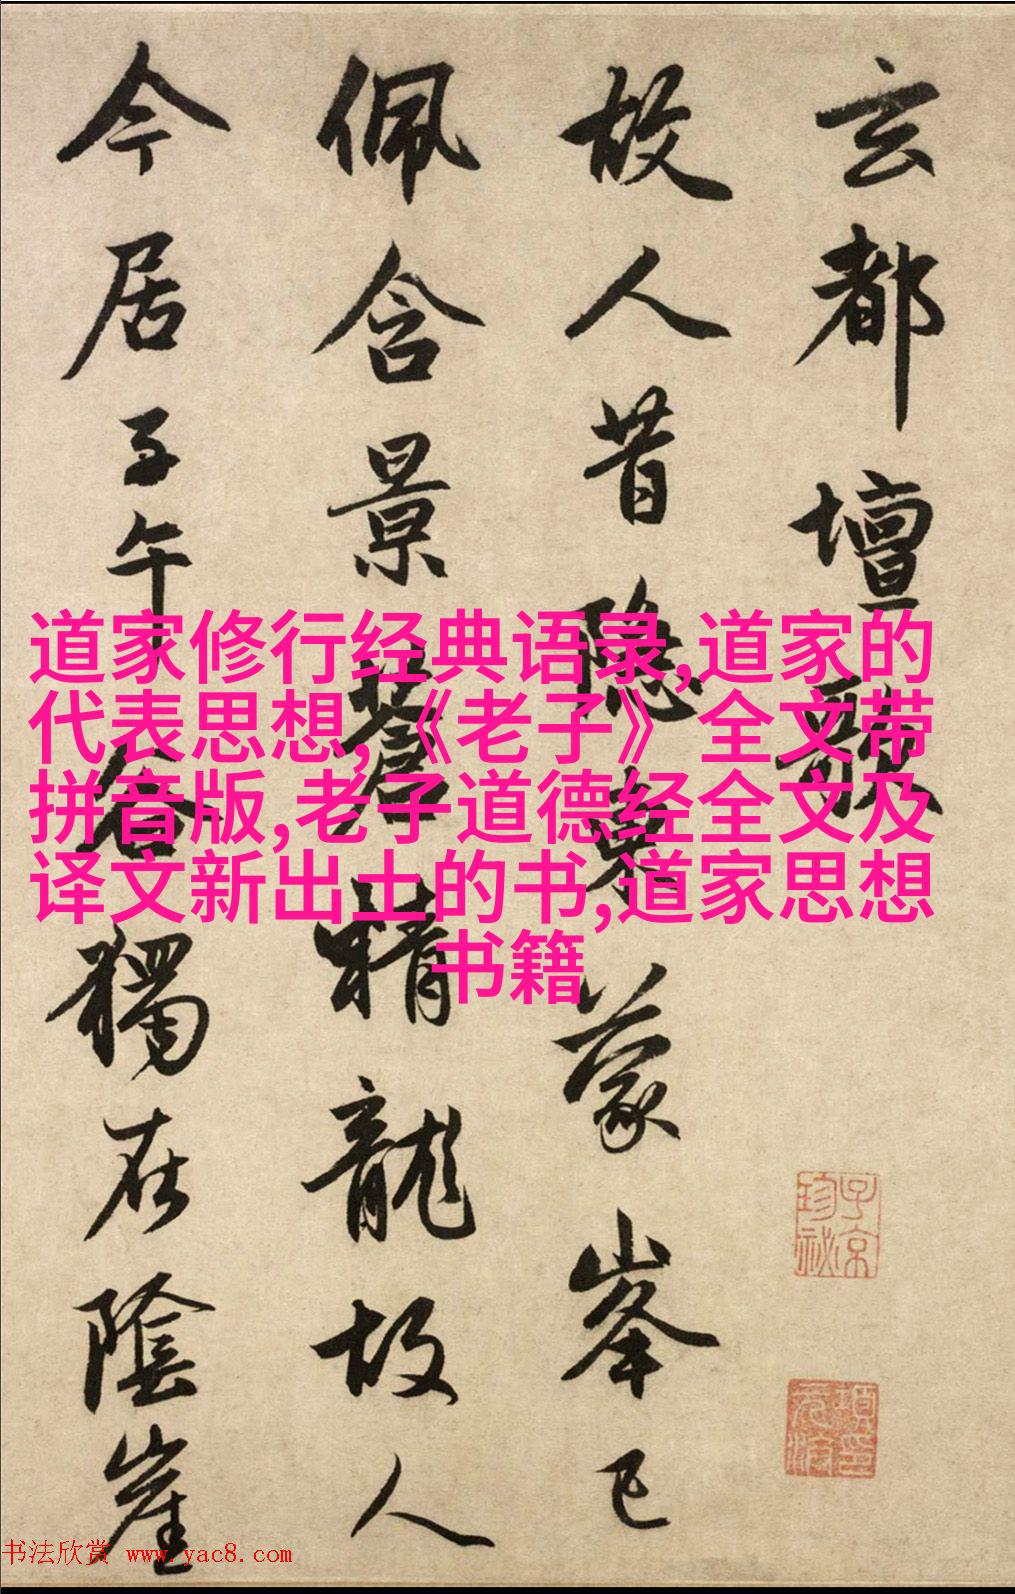 玄都壇歌
故人昔隐東蒙峯已
佩含景蒼精龍故人
今居子午谷獨在陰崖
道家修行经典语录,道家的
代表思想,《老子》全文带
拼音版,老子道德经全文及
译文新出土的书,道家思想
书籍
子京
珍祕
书法欣赏 www.yac8.com